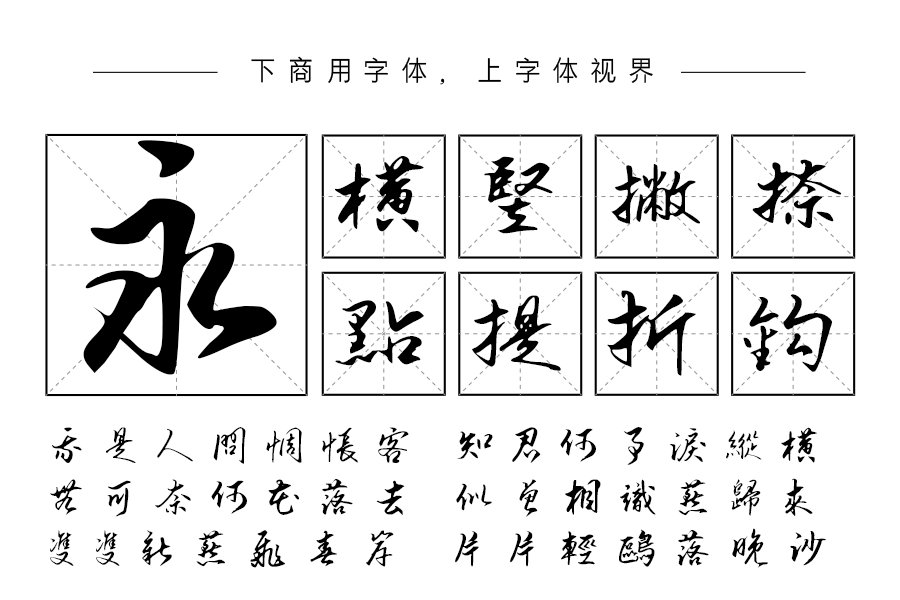 下商用字体，上字体视界
永
橫 豎 撇 捺
點 提 折 鈎
我是人間惆悵客 知君何事淚縱橫
無可奈何花落去 似曾相識燕歸來
雙雙新燕飛春岸 片片輕鷗落晚沙